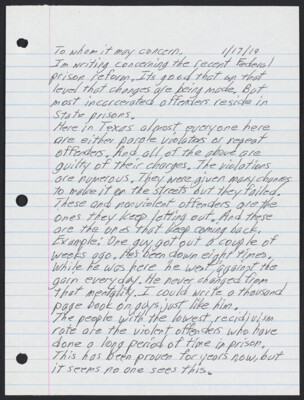 To whom it may concern, 1/17/19
I'm writing concerning the recent Federal
prison reform. Its good that on that
level that changes are being made. But
most incarcerated offenders reside in
State prisons.
Here in Texas almost everyone here
are either parole violators or repeat
offenders. And all of the above are
guilty of their charges. The violations
are numerous. They were given many chances
to make it on the streets but they failed.
These and nonviolent offenders are the
ones they keep letting out. And these
are the ones that keep coming back.
Example: One guy got out a couple of
weeks ago. He's been down eight times.
While he was here he went against the
garn everyday. He never changed from
that mentality. I could write a thousand
page book on guys just like him.
The people with the lowest recidivism
rate are the violent offenders who have
done a long period of time in prison.
This has been proven for years now, but
it seems no one sees this.